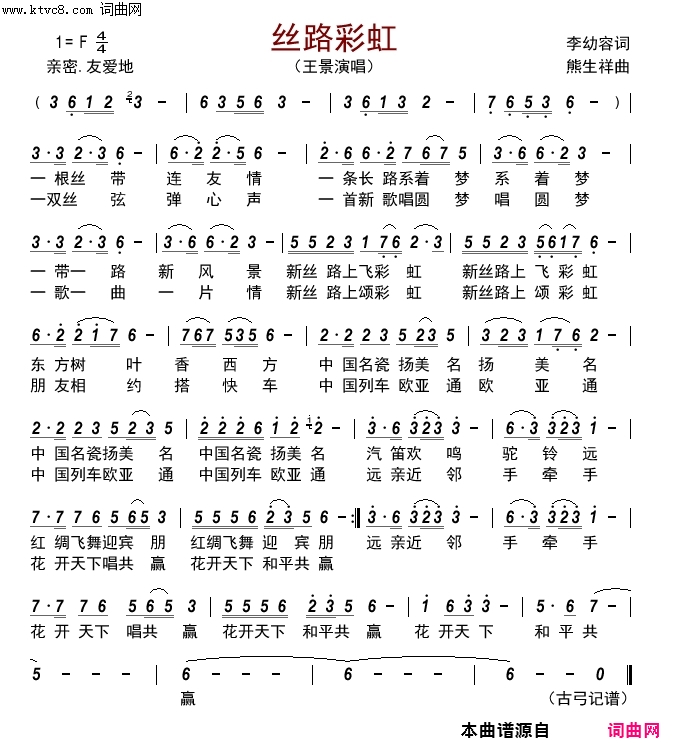 www.ktvc8.com 词曲网
1= F 4/4
丝路彩虹
李幼容词
亲密.友爱地
（王景演唱）
熊生祥曲
( 3 6 1 2 2 3 - | 6 3 5 6 3 - | 3 6 1 3 2 - | 7 6 5 3 6 - )
3·3 2·3 6 - | 6·2 2·5 6 - | 2·6 6·2 7 6 7 5 | 3·3 6·2 6 -
一 根丝 带 连 友 情 一 条长 路系着 梦 系 着 梦
一双丝 弦 弹 心 声 一 首新 歌唱圆 梦 唱 圆 梦
3·3 2·3 6 - | 3·6 6·2 3 - | 5 5 2 3 1 7 6 2·3 | 5 5 2 3 5 6 1 7 6 -
一 带一 路 新 风 景 新丝 路上飞彩 虹 新丝路上 飞 彩 虹
一 歌一 曲 一 片 情 新丝 路上颂彩 虹 新丝路上 颂 彩 虹
6·2 2 1 7 6 - | 7 6 7 5 3 5 6 - | 2·2 2 3 5 2 3 2 | 3 5 2 3 1 7 6 2 -
东 方树 叶 香 西 方 中 国名瓷 扬美 名 扬 美 名
朋 友相 约 搭 快 车 中 国列车 欧亚 通 欧 亚 通
2·2 2 3 5 2 3 5 | 2 2 2 6 1 2 1 2 - | 3·6 3 2 3 3 - | 6·3 3 2 3 1 -
中 国名瓷扬美 名 中国名瓷 扬美 名 汽 笛欢 鸣 驼 铃 远
中 国列车欧亚 通 中国列车 欧亚 通 远 亲近 邻 手 牵 手
7·7 7 6 5 6 5 3 | 5 5 5 5 2 3 5 6 - :| 3·6 3 2 3 3 - | 6·3 3 2 3 1 -
红 绸飞舞迎宾 朋 红绸飞舞 迎 宾 朋 远 亲近 邻 手 牵 手
花 开天下唱共 赢 花开天下 和平共 赢
7·7 7 6 5 6 5 3 | 5 5 5 5 2·3 5 6 - | 1 6 3 3 - | 5·6 7 -
花 开 天下 唱共 赢 花开天下 和平共 赢 花 开天 下 和 平 共
5 - - - | 6 - - - | 6 - - - | 6 - - 0
赢 （古弓记谱）
本曲谱源自 词曲网